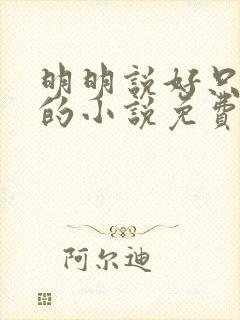 明明說好只
的小說免費
阿尔迪